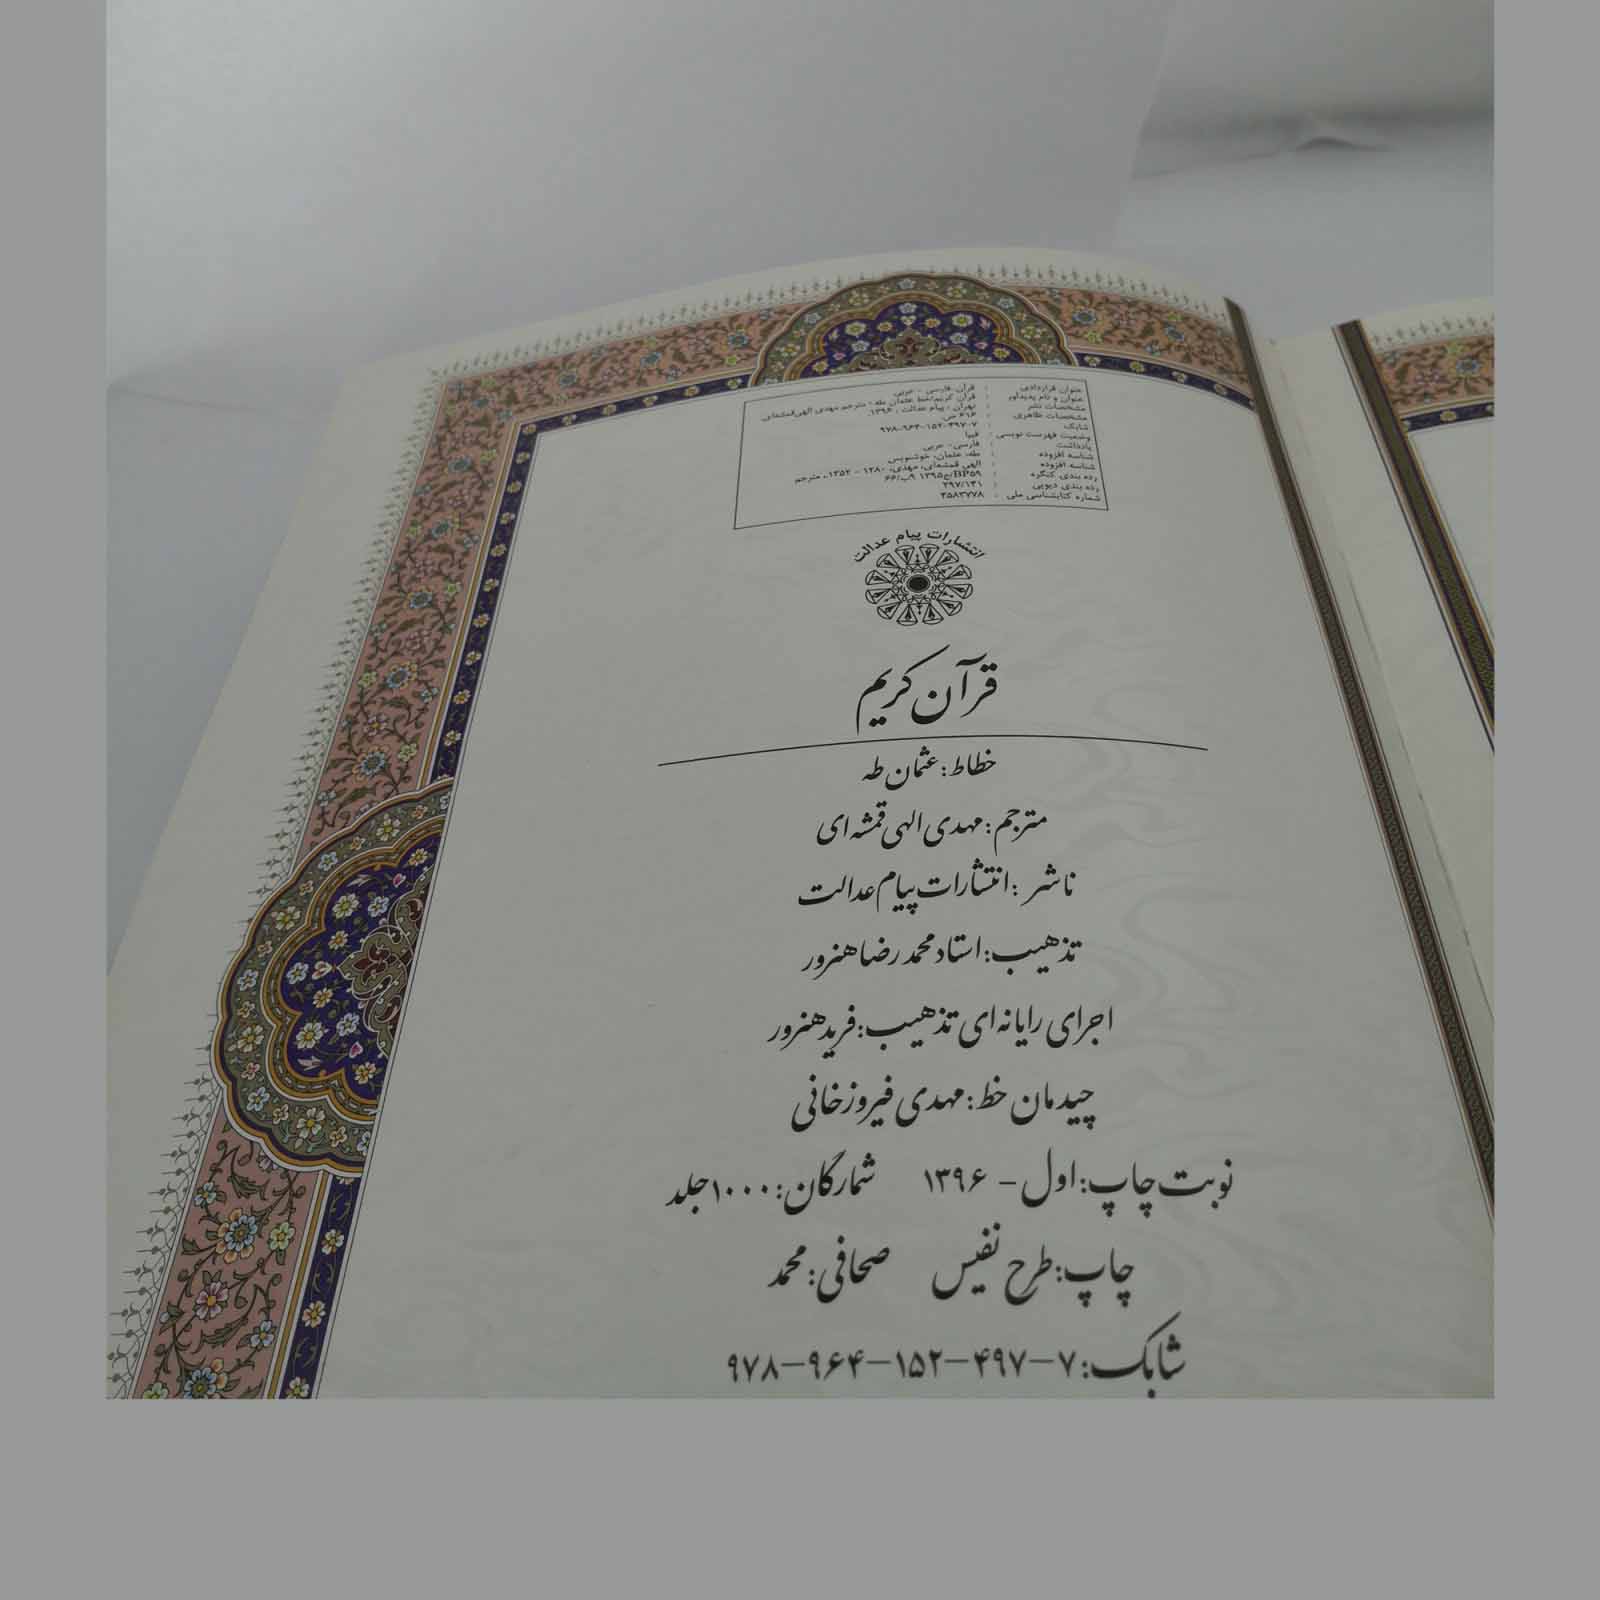 عنوان قراردادی : قرآن. فارسی - عربی
عنوان و نام پدیدآور : قرآن کریم/خط عثمان طه ؛ مترجم مهدی الهی‌قمشه‌ای
مشخصات نشر : تهران : پیام عدالت ، ۱۳۹۶.
مشخصات ظاهری : ۶۱۶ ص.
شابک : ۹۷۸-۹۶۴-۱۵۲-۴۹۷-۷
وضعیت فهرست نویسی : فیپا
یادداشت : فارسی - عربی
شناسه افزوده : طه، عثمان، خوشنویس
شناسه افزوده : الهی قمشه‌ای، مهدی، ۱۲۸۰ - ۱۳۵۲، مترجم
رده بندی کنگره : BP۵۹/
رده بندی دیویی : ۲۹۷/۱۴۱
شماره کتابشناسی ملی : ۴۵۸۳۷۷۸
انتشارات پیام عدالت
قرآن کریم
خطاط: عثمان طه
مترجم: مهدی الهی قمشه ای
ناشر : انتشارات پیام عدالت
تذهیب: استاد محمد رضا هنرور
اجرای رایانه ای تذهیب: فرید هنرور
چیدمان خط: مهدی فیروزخانی
نوبت چاپ: اول - ۱۳۹۶ شمارگان: ۱۰۰۰ جلد
چاپ: طرح نفیس صحافی: محمد
شابک: ۷-۴۹۷-۱۵۲-۹۶۴-۹۷۸